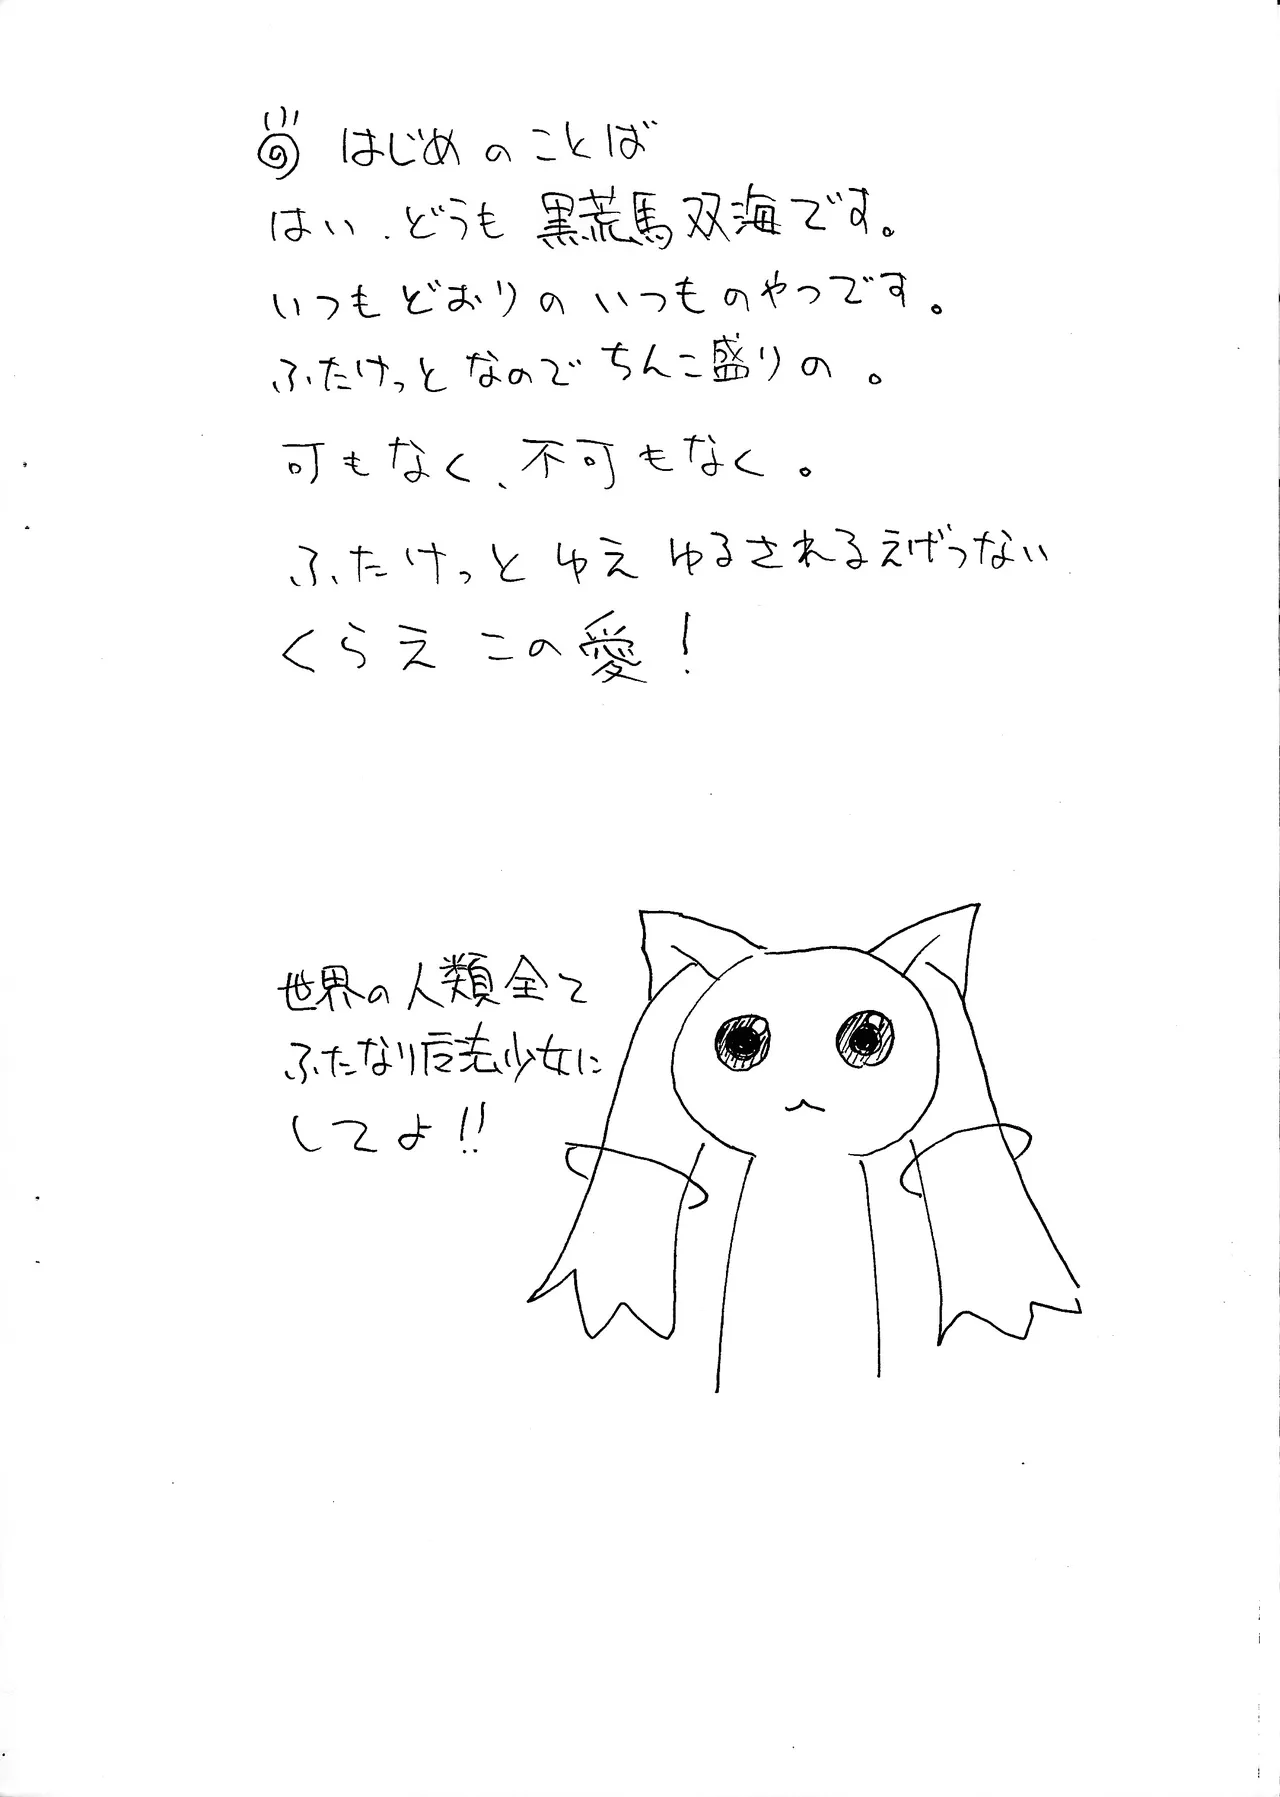 はじめのことば
はい、どうも黒荒馬双海です。
いつもどおりのいつものやつです。
ふたけっとなのでちんこ盛りの。
可もなく、不可もなく。
ふたけっとゆえゆるされるえげつない
くらえこの愛!
世界の人類全て
ふたなり魔法少女に
してよ!!